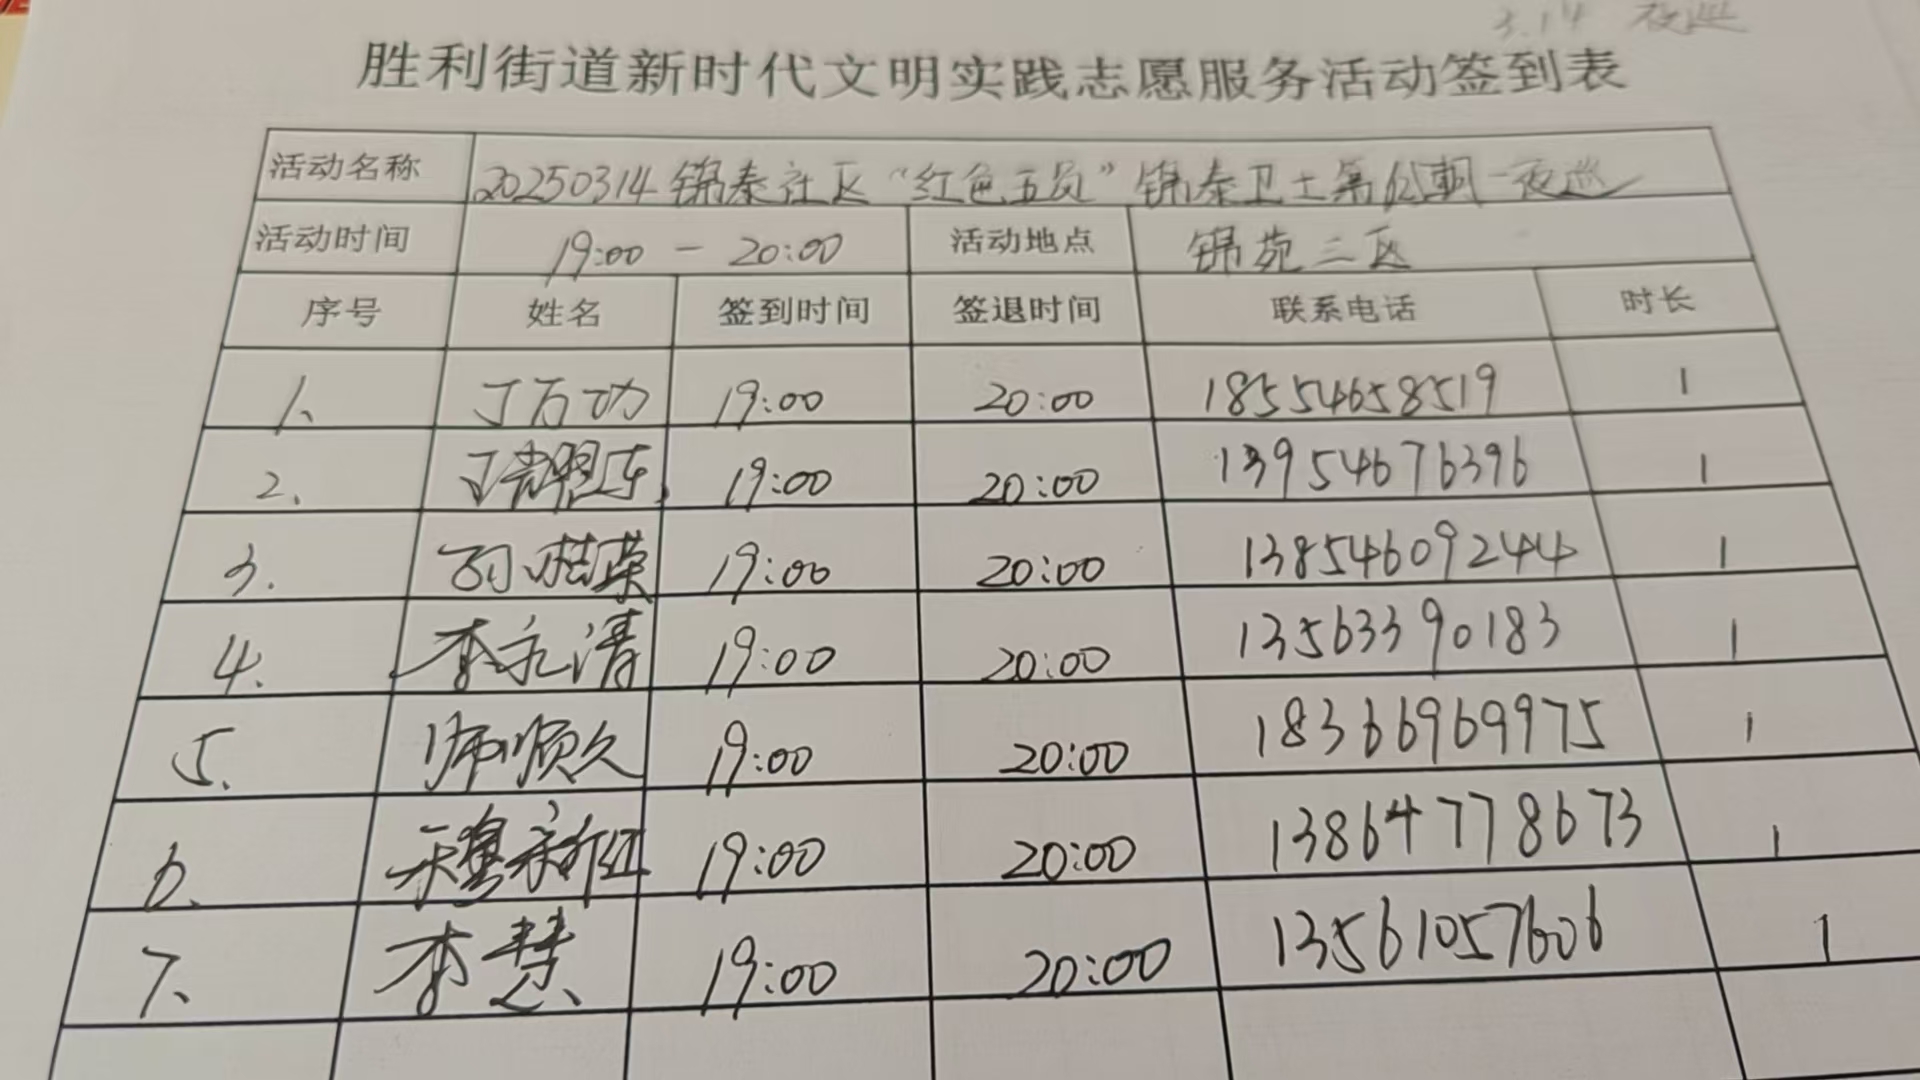 3.14 夜巡
胜利街道新时代文明实践志愿服务活动签到表
活动名称 20250314锦泰社区“红色五员”锦泰卫士第 期-夜巡
活动时间 19:00 - 20:00 活动地点 锦苑三区
序号 姓名 签到时间 签退时间 联系电话 时长
1、 丁万功 19:00 20:00 18554658519 1
2、 19:00 20:00 13954676396 1
3. 19:00 20:00 13854609244 1
4. 李永清 19:00 20:00 13563390183 1
5. 师顺久 19:00 20:00 18366969975 1
6. 19:00 20:00 13864778673 1
7、 李慧 19:00 20:00 13561057606 1